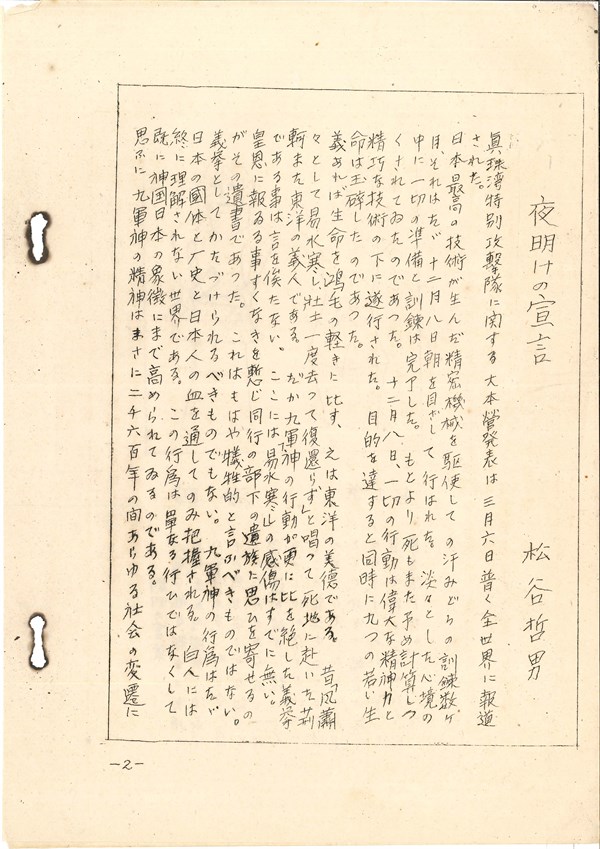 夜明けの宣言
松谷哲男
眞珠湾特別攻撃隊に関する大本営発表は三月六日普く全世界に報道
された。
日本最高の技術が生んだ精密機械を駆使しての汗みどろの訓練数ヶ
月、それはたゞ十二月八日朝を目ざして行はれた。淡々とした心境の
中に一切の準備と訓練は完了した。もとより死もまた予め計算しつ
くされてゐたのであつた。十二月八日、一切の行動は偉大な精神力と
精巧な技術の下に遂行された。目的を達すると同時に九つの若い生
命は玉砕したのであつた。
義あれば生命を鴻毛の軽きに比す、之は東洋の美徳である。昔「風蕭
々として易水寒し、壮士一度去つて復還らず」と唱つて死地に赴いた荊
軻また東洋の義人である。だが九軍神の行動が更に比を絶した義挙
である事は言を俟たない。ここには易水寒しの感傷はすでに無い。
皇恩に報ゐる事すくなきを慙じ同行の部下の遺族に思ひを寄せるの
がその遺書であつた。これはもはや犠牲的と言ふべきものではない。
義挙としてかたづけられるべきものでもない。九軍神の行為はたゞ
日本の國体と歴史と日本人の血を通してのみ把握される。白人には
終に理解されない世界である。この行為は單なる行ひではなくして
既に神国日本の象徴にまで高められてゐるのである。
思ふに九軍神の精神はまさに二千六百年の間あらゆる社会の変遷に
-2-